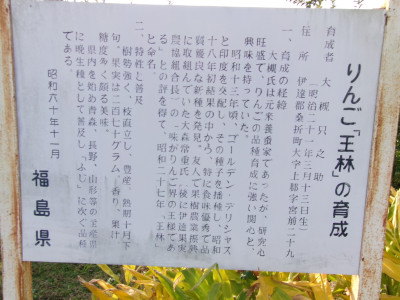 りんご「王林」の育成
育成者　大槻只之助
（明治二十一年三月十三日生）
住所　伊達郡桑折町大字上郡字宮前二十九
一、育成の経緯
大槻氏は元来養蚕家であったが、研究心
旺盛で、りんごの品種育成に強い関心と、
興味を持っていた。
昭和十三年頃、ゴールデン・デリシャス
と印度を交配し、その種子を播種し、昭和
十八年初結果の中から、特に食味優秀で品
質優良な新種を発見。友人で果樹農業振興
に取組んでいた大森常重氏（後に伊達果実
農協組合長）の「味がりんご界の王様であ
る」との評を得て、昭和二十七年、「王林」
と命名
二、特性と普及
樹勢強く、枝直立し、豊産、熟期十月下
旬、果実は二百七十グラム、香り、果汁
糖度多く頗る美味。
県内を始め青森、長野、山形等の主産県
に晩生種として普及し「ふじ」に次ぐ品種
である。
昭和六十年十一月
福島県